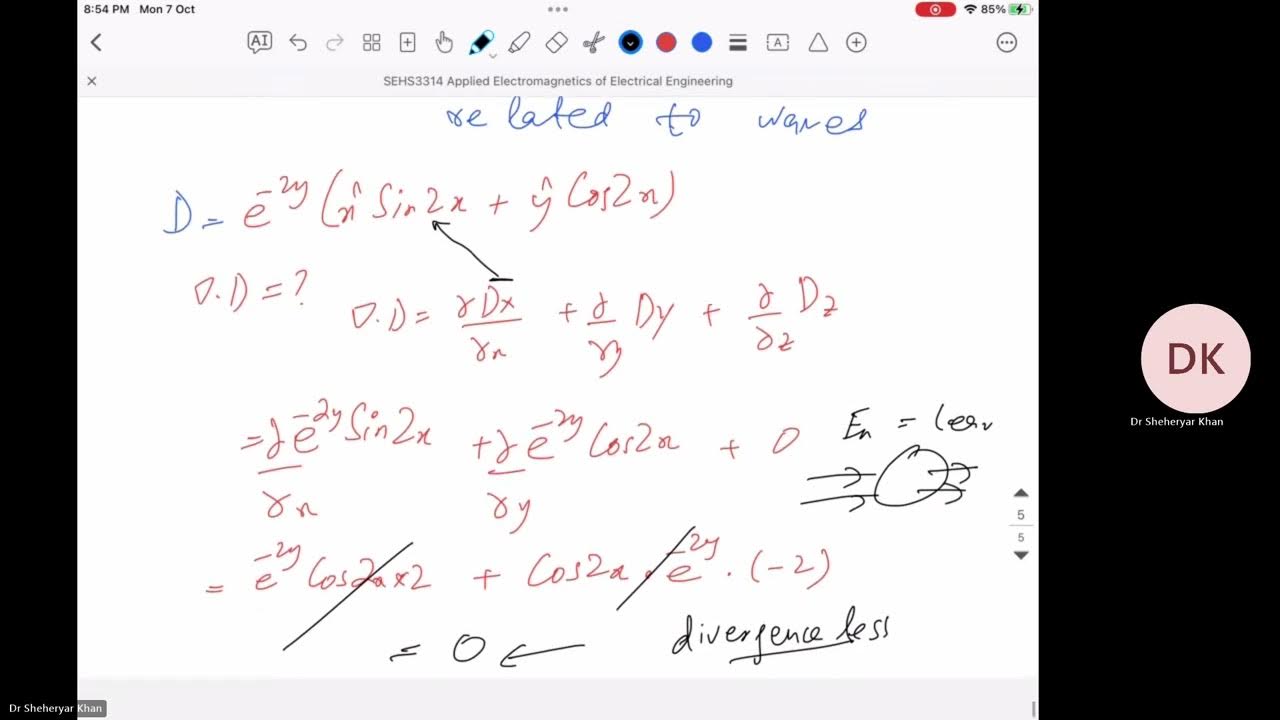 8:54 PM Mon 7 Oct
85%
AI
A
SEHS3314 Applied Electromagnetics of Electrical Engineering
related to waves
D = e^-2y (x̂ Sin2x + ŷ Cos2x)
∇.D = ?
∇.D = ∂Dx/∂x + ∂/∂y Dy + ∂/∂z Dz
= ∂/∂x e^-2y Sin2x + ∂/∂y e^-2y Cos2x + 0
= e^-2y Cos2x × 2 + Cos2x . e^-2y . (-2)
= 0
divergence less
5
5
DK
Dr Sheheryar Khan
Dr Sheheryar Khan